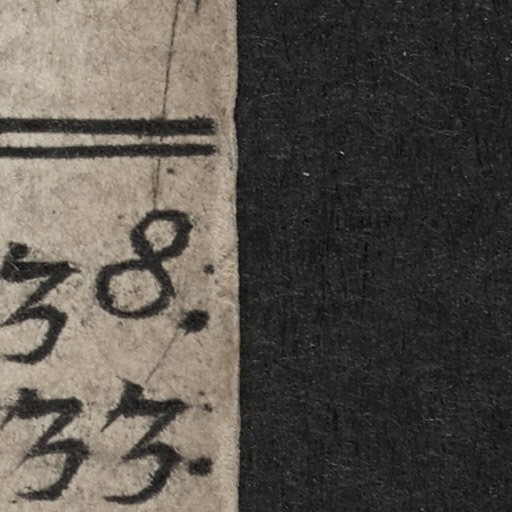 38.
33.